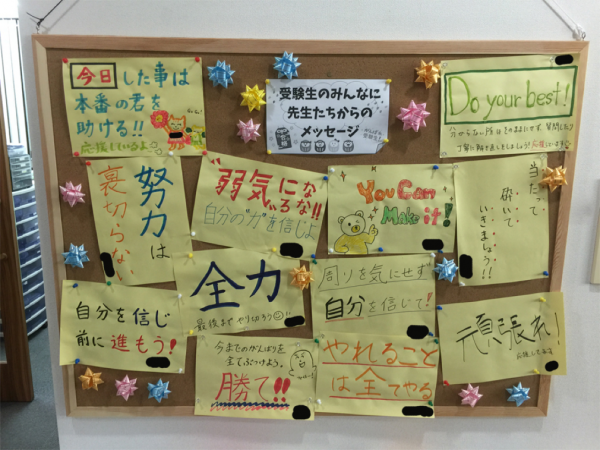 今日した事は
本番の君を
助ける!!
応援しているよ
受験生のみんなに
先生たちからの
メッセージ
がんばれ
受験生!!
Do your best!
分からない所はそのままにせず、質問したり
丁寧に解き直しをしましょう!応援しています
努力は
裏切らない
"弱気にな
るな!!
自分の"力"を信じよ
You Can
Make it!
当たって
砕いて
いきましょう!!
全力
最後までやり切ろう
周りを気にせず
自分を信じて!
自分を信じ
前に進もう!
今までのがんばりを
全てぶつけよう。
勝て!!
やれること
は全てやる
頑張れ!
応援してるよ